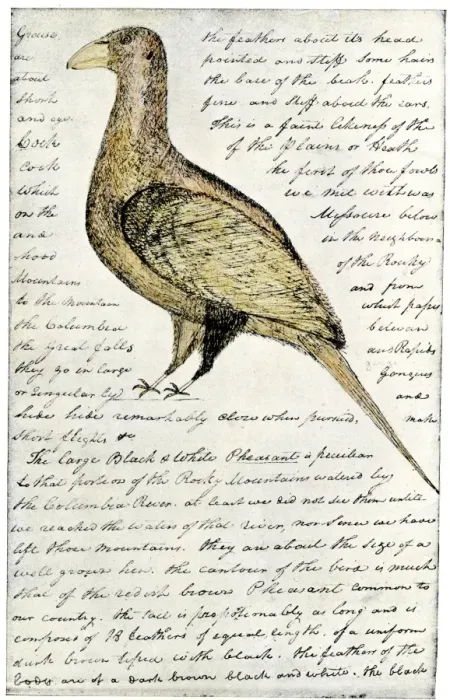 Grouse the feathers about its head
are pointed and stiff some hairs
about the base of the beak. feathers
short fine and stiff about the ears.
and eye. This is a faint likeness of the
Cock of the Plains or Heath
Cock the first of those fowls
which we met with was
on the Missouri below
and in the neighbour
hood of the Rocky
Mountains and from
to the Mountain which passes
the Columbia between
the Great falls and Rapids
they go in large Gangues
or Singularly and
hide hide remarkably close when pursued, make
short flights &c
The large Black & White Pheasant is peculiar
to that portion of the Rocky Mountains watered by
the Columbia River. at least we did not see them untill
we reached the waters of that river, nor since we have
left those mountains. they are about the size of a
well grown hen. the contour of the bird is much
that of the redish brown Pheasant common to
our country. the tail is proportionably as long and is
composed of 18 feathers of equal length. of a uniform
dark brown tiped with black. the feathers of the
body are of a dark brown black and white. the black